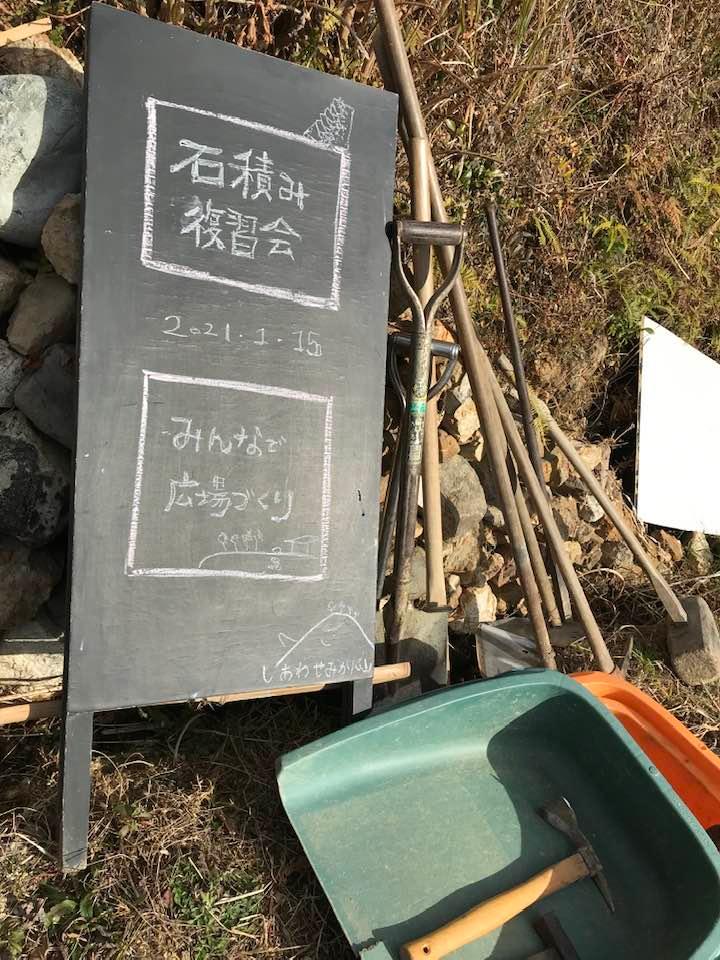 石積み
復習会
2021.1.15
みんなで
広場づくり
しあわせみかん山